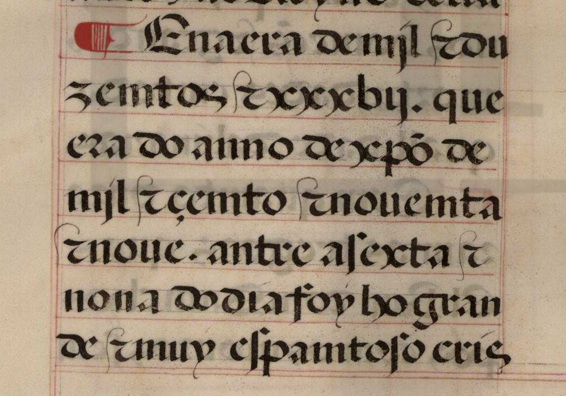 ¶ Ena era de mjl ⁊ du
zemtos ⁊ xxxbij. que
era do anno de xpõ de
mjl ⁊ çemto ⁊ nouemta
⁊ noue. antre a sexta ⁊
nona do dia foy ho gran
de ⁊ muy espamtoso cris